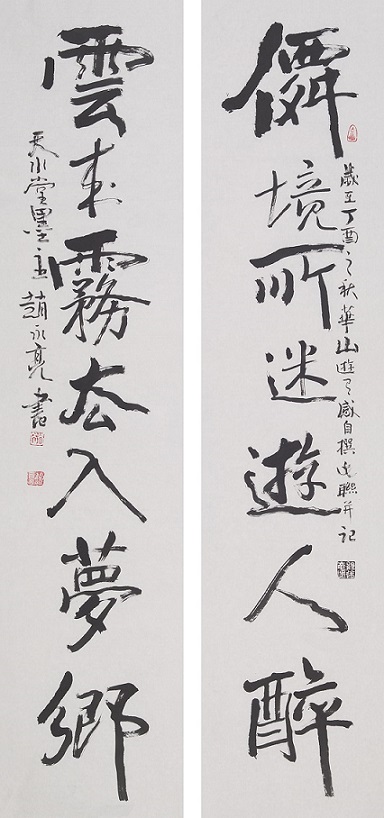 僊境所迷遊人醉
歲在丁酉之秋華山遊有感自撰此聯并記
雲來霧去入夢鄉
天水堂墨主趙永亮書